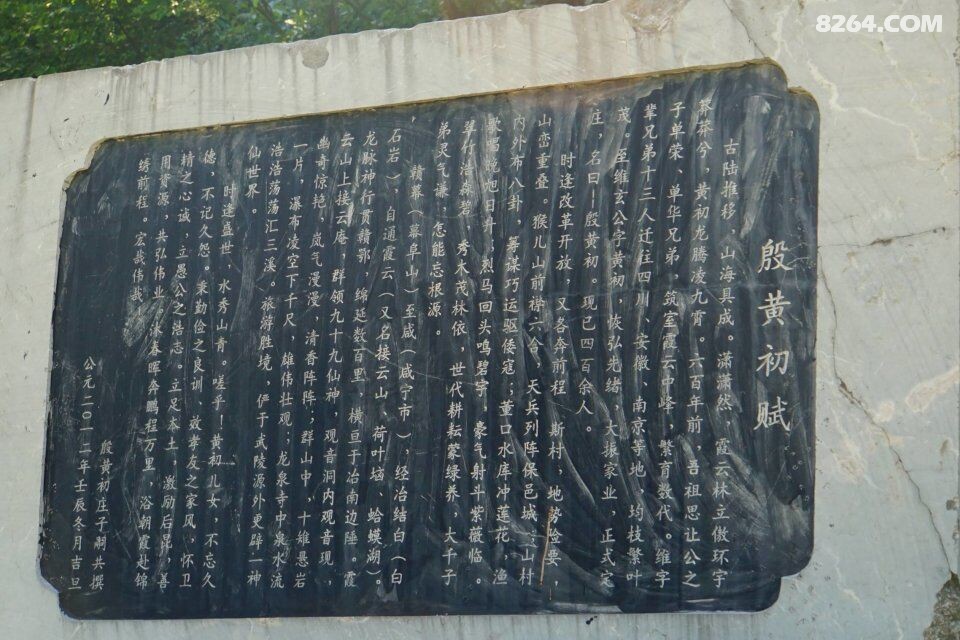 8264.COM
殷黄初赋
古陆推移，山海具成。潇潇然 霞云林立傲环宇
莽莽兮，黄初龙腾凌九霄。六百年前，吾祖思让公之
子单荣、单华兄弟，筑室霞云中峰，繁育数代。维字
辈兄弟十三人迁往四川、安徽、南京等地 均枝繁叶
茂。至维玄公字黄初，恢弘光绪，大振家业，正式定
庄，名曰——殷黄初。现已四百余人。
时逢改革开放，又各奔前程 斯村，地势险要，
山峦重叠。猴儿山前襟六合，天兵列阵保邑城；山村
内外布八卦 筹谋巧运驱倭寇；董口水库冲莲花，渔
歌唱晚旭日升；烈马回头鸣碧宇，豪气射斗紫薇临。
翠竹浩森碧 秀木茂林依，世代耕耘蒙绿养，大千子
弟灵气谦；怎能忘根源。
赣幕（幕阜山）至咸（咸宁市），经治结白（白
石岩），自通霞云（又名接云山、荷叶垴、蛤蟆湖）。
龙脉神行贯赣鄂 绵延数百里，横亘于冶南边陲。霞
云山上接云庵，群领九十九仙神，观音洞内观音现，
幽奇惊艳。岚气漫漫，清香阵阵；群山中，十雄悬岩
一片，瀑布凌空下千尺，雄伟壮观；龙泉寺中泉水流
浩浩荡荡汇三溪。旅游胜境，俨于武陵源外更辟一神
仙世界。
时逢盛世，水秀山青。嗟乎！黄初儿女，不忘久
德，不记久怨。秉勤俭之良训、效孝友之家风，怀卫
精之心诚、立愚公之浩志。立足本土，激励后昆，善
用资源，共弘伟业 沐春晖奔鹏程万里，浴朝霞赴锦
绣前程。宏哉伟哉
殷黄初庄子嗣共撰
公元二〇一二年壬辰冬月吉旦